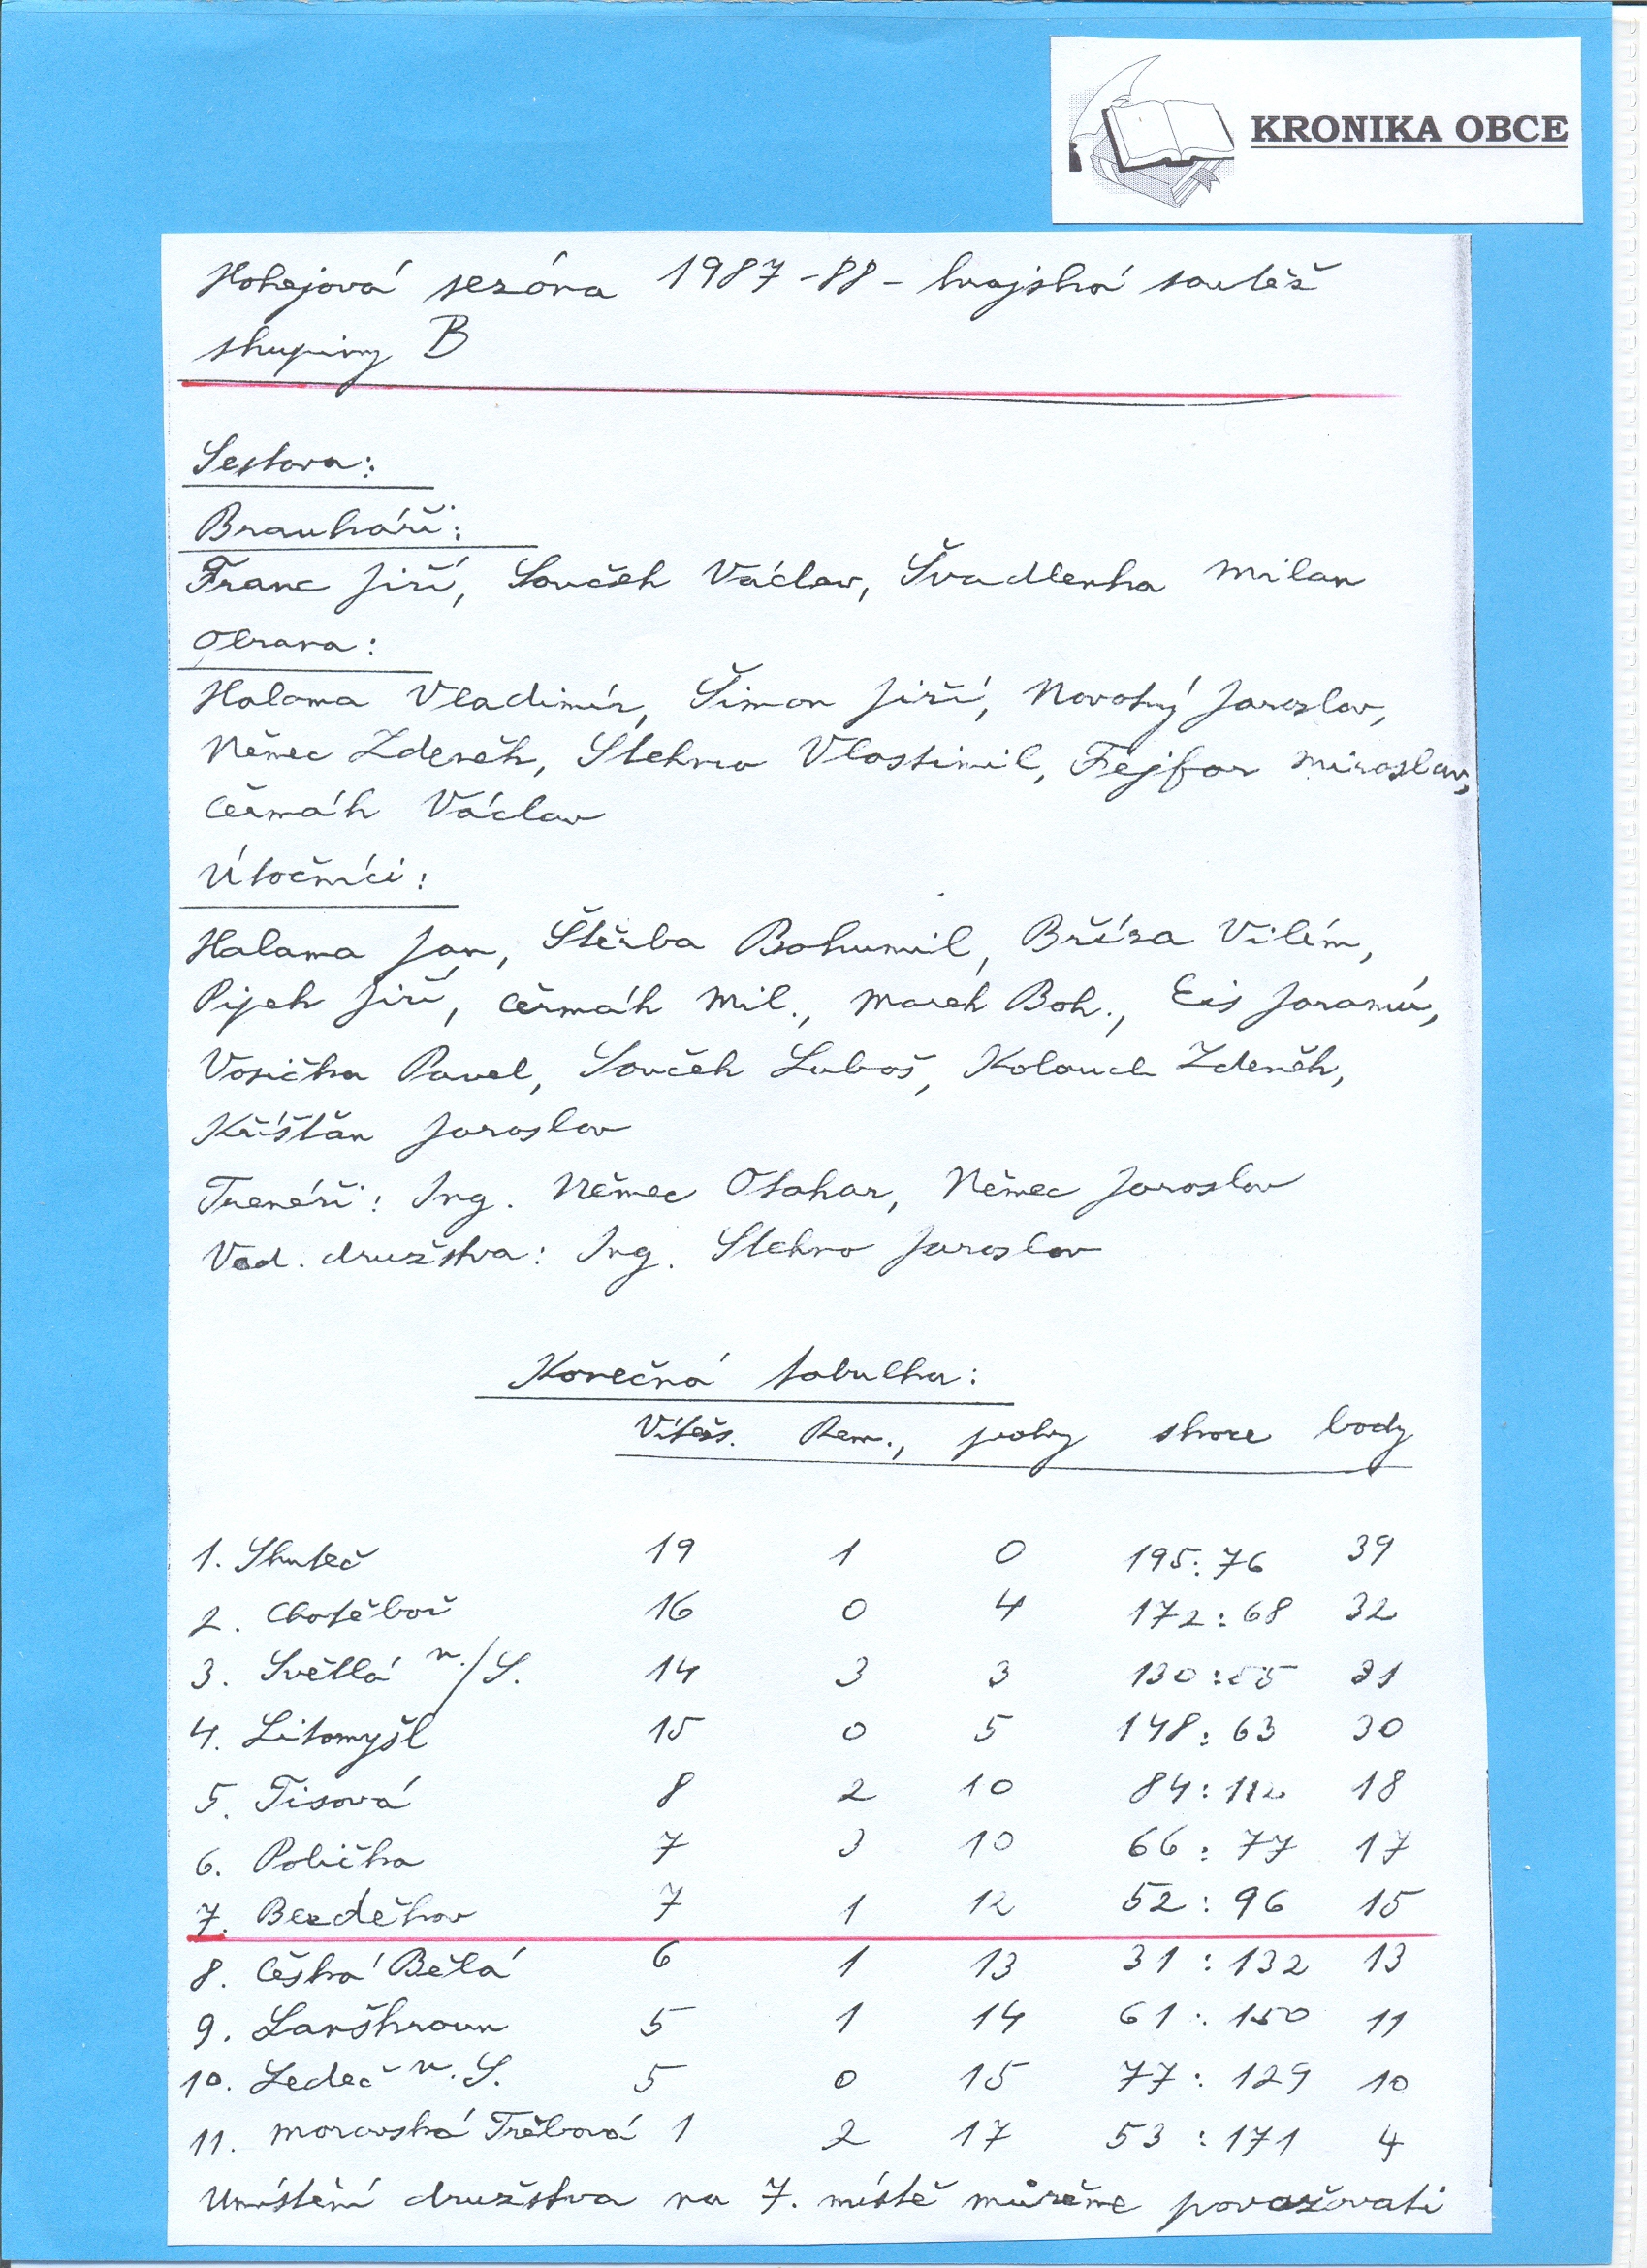 KRONIKA OBCE
Hokejová sezóna 1987-88 - krajská soutěž
skupiny B
Sestava:
Brankáři:
Franc Jiří, Souček Václav, Švadlenka Milan
Obrana:
Halama Vladimír, Šimon Jiří, Novotný Jaroslav,
Němec Zdeněk, Stehno Vlastimil, Fejfar Miroslav,
Čermák Václav
Útočníci:
Halama Jan, Štěrba Bohumil, Bříza Vilém,
Pipek Jiří, Čermák Mil., Marek Boh., Eis Jaromír,
Vosička Pavel, Souček Luboš, Kolouch Zdeněk,
Křišťan Jaroslav
Trenéři: Ing. Němec Otakar, Němec Jaroslav
Ved. družstva: Ing. Stehno Jaroslav
Konečná tabulka:
Vítěz. Rem., prohry skore body
1. Skuteč 19 1 0 195:76 39
2. Chotěboř 16 0 4 172:68 32
3. Světlá n./S. 14 3 3 130: 31
4. Litomyšl 15 0 5 148:63 30
5. Tisová 8 2 10 84:112 18
6. Polička 7 3 10 66:77 17
7. Bezděkov 7 1 12 52:96 15
8. Česká Bělá 6 1 13 31:132 13
9. Lanškroun 5 1 14 61:150 11
10. Ledeč n.S. 5 0 15 77:129 10
11. Moravská Třebová 1 2 17 53:171 4
Umístění družstva na 7. místě můžeme považovati